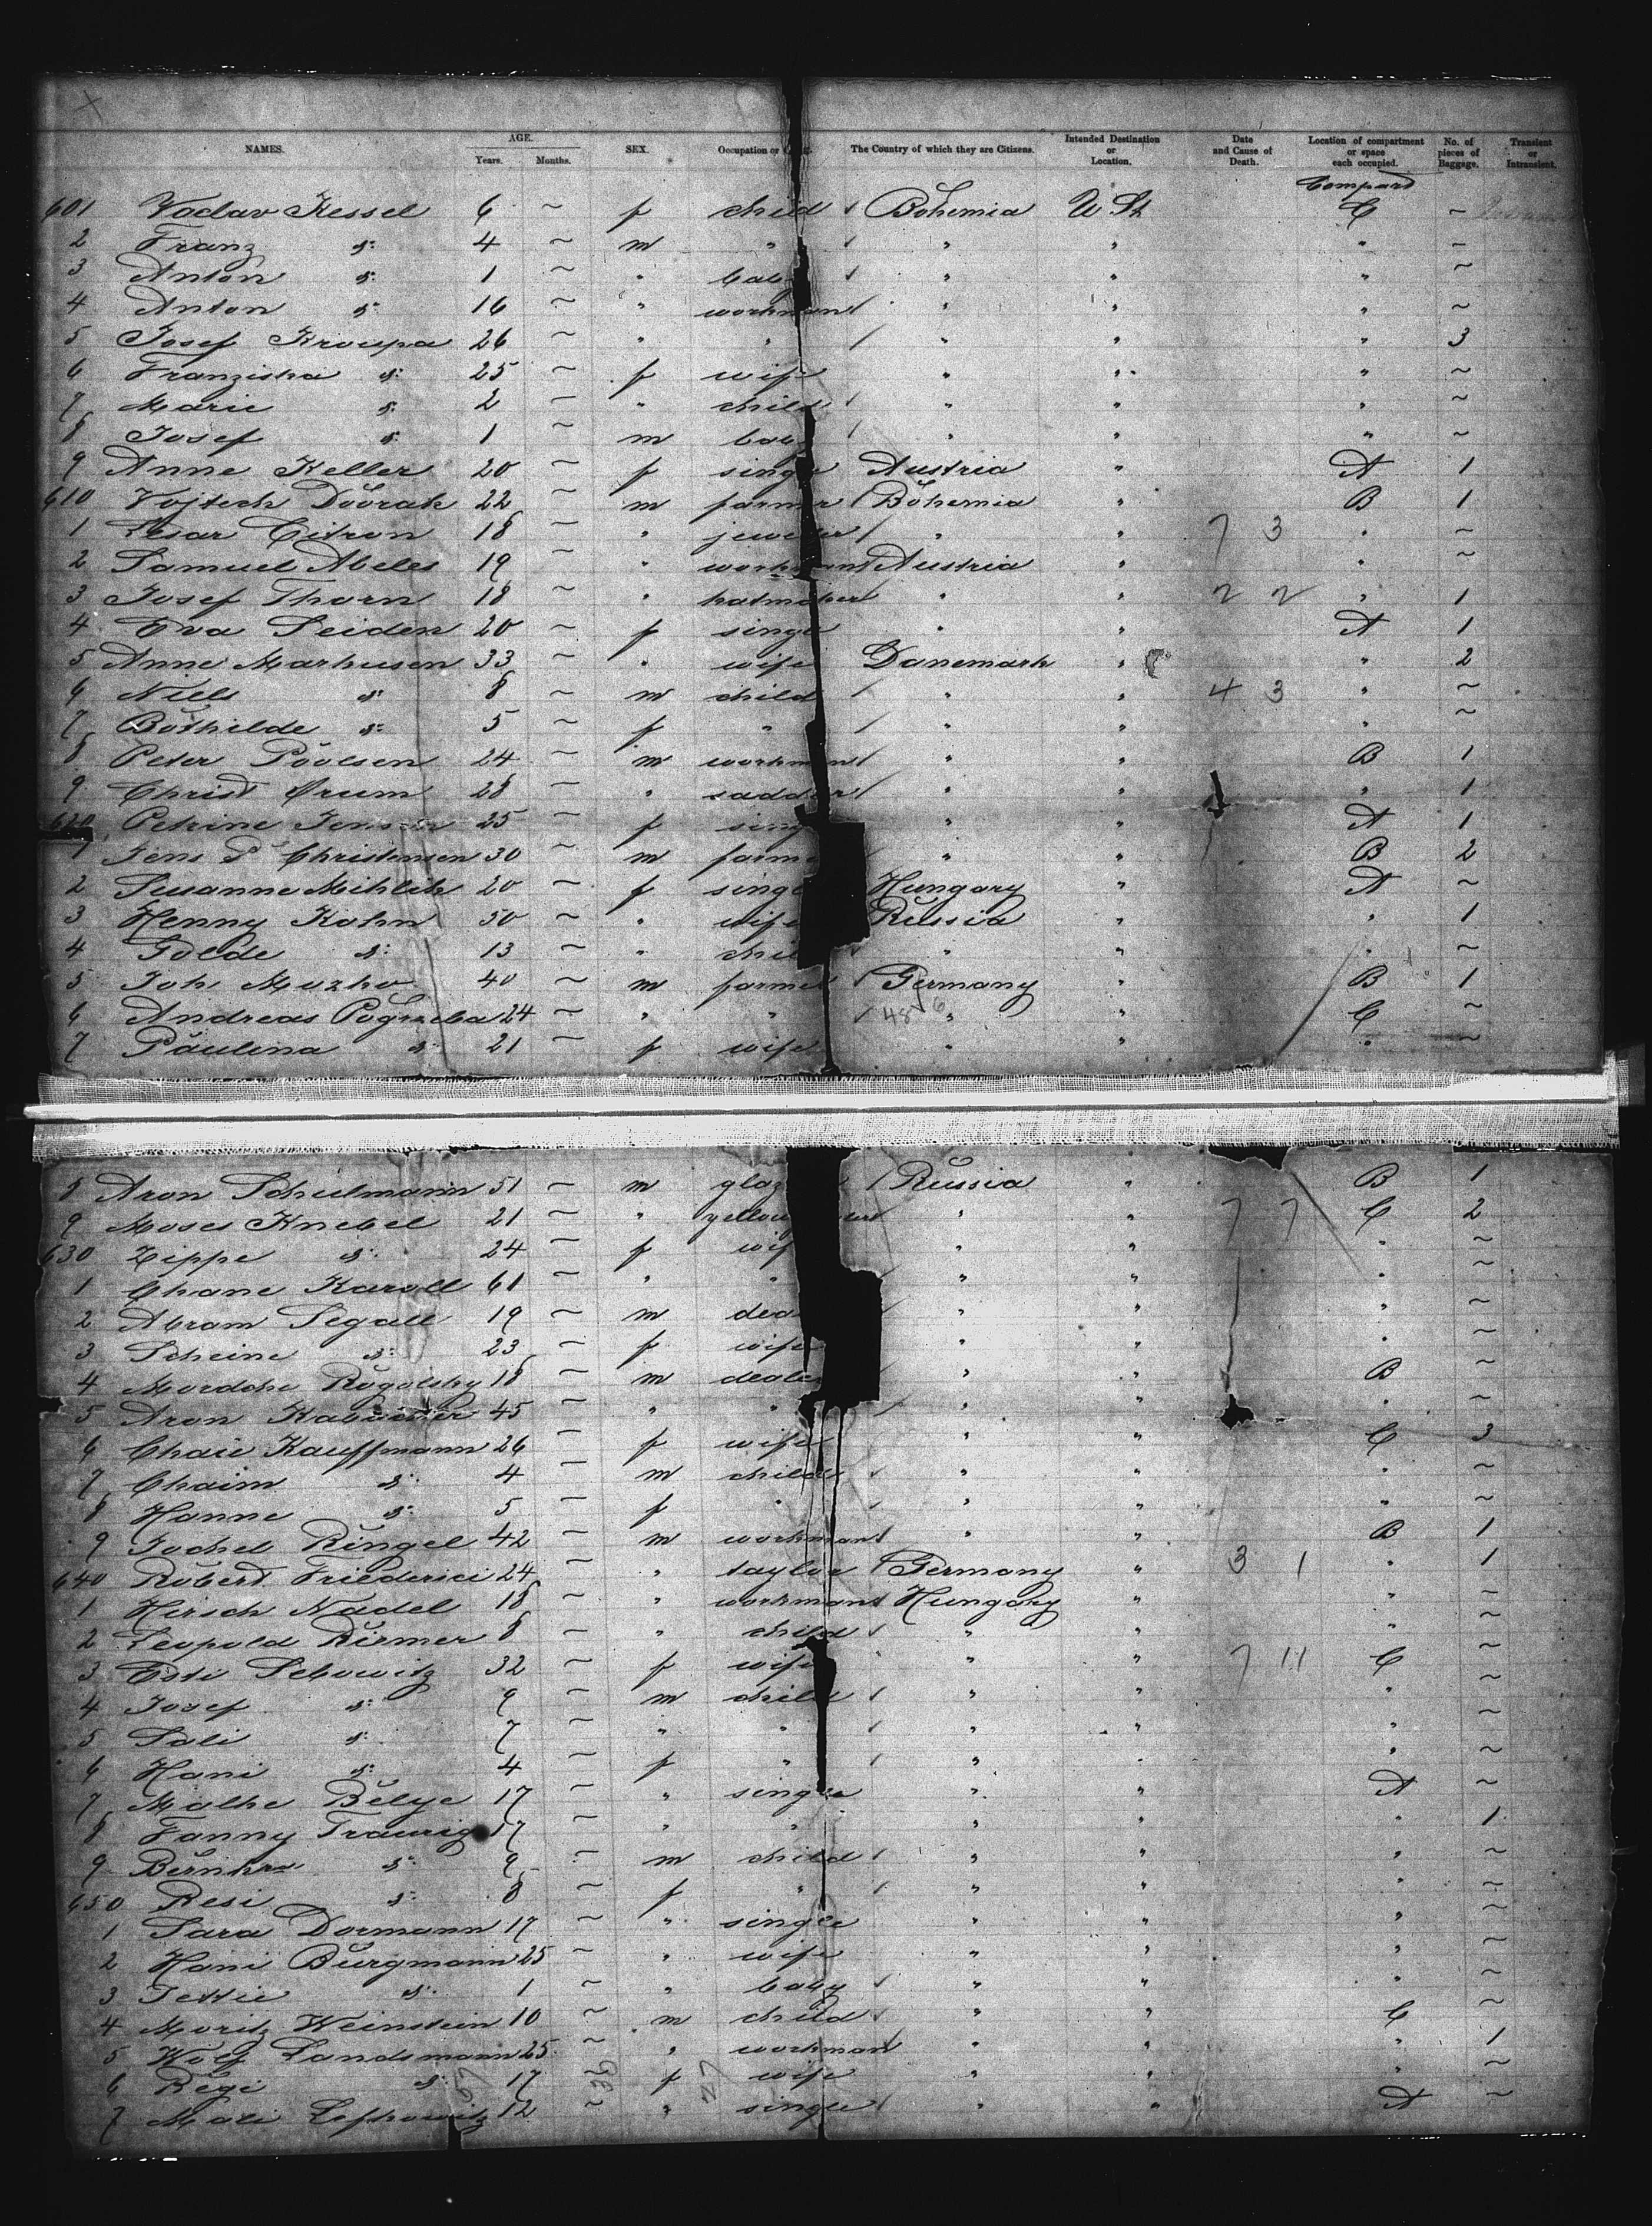 NAMES. AGE. Years. Months. SEX. Occupation or The Country of which they are Citizens. Intended Destination or Location. Date and Cause of Death. Location of compartment or space each occupied. No. of pieces of Baggage. Transient or Intransient.
Compard
601 Vaclav Kessel 6 ~ f child Bohemia U St C ~
2 Franz d: 4 ~ m " " " " ~
3 Anton d: 1 ~ " baby " " " ~
4 Anton d: 16 ~ " workman " " " ~
5 Josef Kroupa 26 ~ " " " " " 3
6 Franziska d: 25 ~ f wife " " " ~
7 Marie d: 2 ~ " child " " " ~
8 Josef d: 1 ~ m baby " " " ~
9 Anne Keller 20 ~ f single Austria " A 1
610 Vojtech Dvorak 22 ~ m farmer Bohemia " B 1
1 Cesar Citron 18 ~ " jeweler " " 7 3 " ~
2 Samuel Abeles 19 ~ " workman Austria " " ~
3 Josef Thorn 18 ~ " hatmaker " " 2 2 " 1
4 Eva Seiden 20 ~ f single " " A 1
5 Anne Markusen 33 ~ " wife Danemark " " 2
6 Niels d: 8 ~ m child " " 4 3 " ~
7 Bothilde d: 5 ~ f " " " " ~
8 Peter Poulsen 24 ~ m workman " " B 1
9 Christ Orum 28 ~ " saddler " " " 1
620 Petrine Jensen 25 ~ f sing " " A 1
1 Jens P Christensen 30 ~ m farme " " B 2
2 Susanne Mihlik 20 ~ f single Hungary " A ~
3 Henny Kahn 50 ~ " wife Russia " " 1
4 Golde d: 13 ~ " chil " " " ~
5 Joh. Muzho 40 ~ m farmer Germany " B 1
6 Andreas Pogrzeba 24 ~ " " 48 6 " " C ~
7 Paulina d: 21 ~ f wife " " " ~
8 Aron Schulmann 51 ~ m glaz Russia " B 1
9 Moses Knebel 21 ~ " yellow " " 7 7 C 2
630 Zippe d: 24 ~ f wif " " " ~
1 Chane Karoll 61 ~ " " " " " ~
2 Abram Segall 19 ~ m dea " " " ~
3 Scheine d: 23 ~ f wife " " " ~
4 Mordche Rogolsky 18 ~ m deale " " B ~
5 Aron 45 ~ " " " " " ~
6 Chaie Kauffmann 26 ~ f wife " " C 3
7 Chaim d: 4 ~ m child " " " ~
8 Hanne d: 5 ~ f " " " " ~
9 Jochel Ringel 42 ~ m workman " " B 1
640 Robert Friederici 24 ~ " taylor Germany " 3 1 " 1
1 Hirsch Nadel 18 ~ " workman Hungary " " ~
2 Leopold Riemer 8 ~ " child " " " ~
3 Esti Lebowitz 32 ~ f wife " " 7 11 C ~
4 Josef d: 9 ~ m child " " " ~
5 Sali d: 7 ~ " " " " " ~
6 Hani d: 4 ~ f " " " " ~
7 Malke Belye 17 ~ " single " " A ~
8 Fanny Traurig 17 ~ " " " " " 1
9 d: 9 ~ m child " " " ~
650 Resi d: 8 ~ f " " " " ~
1 Sara Dormann 17 ~ " single " " " ~
2 Hani Burgmann 25 ~ " wife " " " ~
3 Jettie d: 1 ~ " baby " " " ~
4 Moritz Weinstein 10 ~ m child " " C ~
5 Wolf Landsmann 25 ~ " workman " " " 1
6 Regi d: 17 ~ f wife " " " ~
7 Mali Lefkowitz 12 ~ " single " " A ~